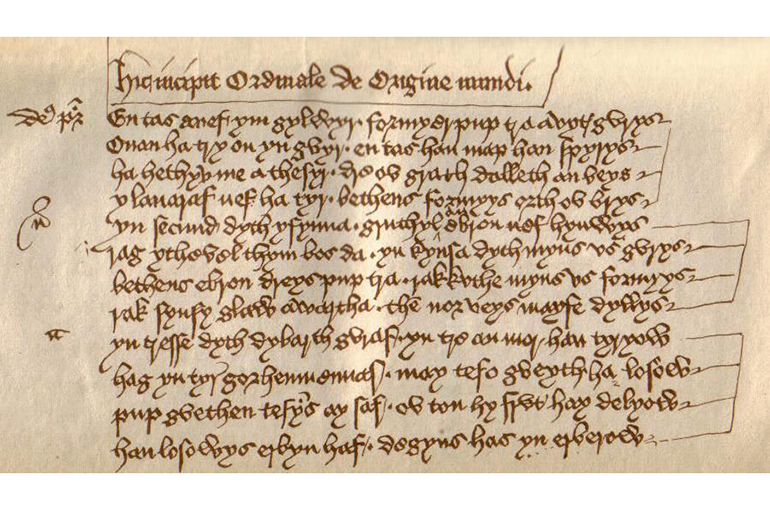 Hic incipit Ordinale de Origine mundi.
En tas a nef ym gylwyr . formyer pup tra a vyt gvrys
Onan ha try on yn gvyr . en tas han map han spyrys
ha hethyw me a thesyr . dre ov grath dalleth an veys
y lavaraf nef ha tyr . bethens formyys orth ov brys
yn secund dyth y fynna . gruthyl ebron nef hynwys
rag ythevel thym bos da . yn kynsa dyth myns vs gvrys
bethens ebron dreys pup tra . rak kuthe myns vs formyys
rak synsy glaw awartha . the nor veys may fe dyllys
yn tresse dyth dybarth gvraf . yn tre an mor han tyryow
hag yn tyr gorhenmennaf . may tefo gveyth ha losow
pup gvethen tefyns ay saf . ov ton hy ffrvt hay delyow
han losowys erbyn haf . dogyns has yn erberow